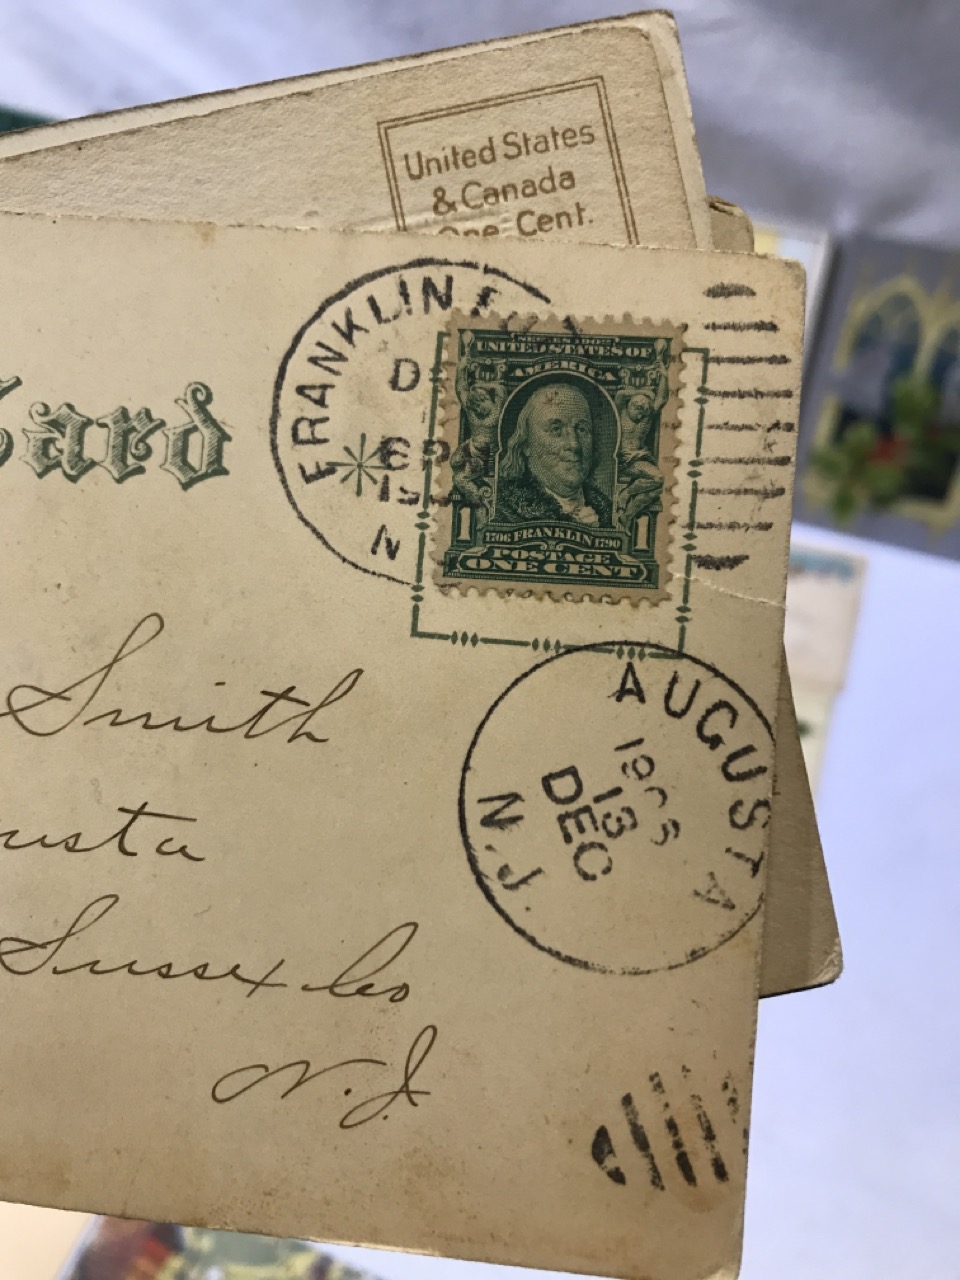 United States
& Canada
One Cent.
FRANKLIN
D
6 PM
19
N
UNITED STATES OF
AMERICA
1 1706 FRANKLIN 1790 1
POSTAGE
ONE CENT
ard
Smith
usta
Sussex Co
N.J.
AUGUSTA
DEC
13
N.J.